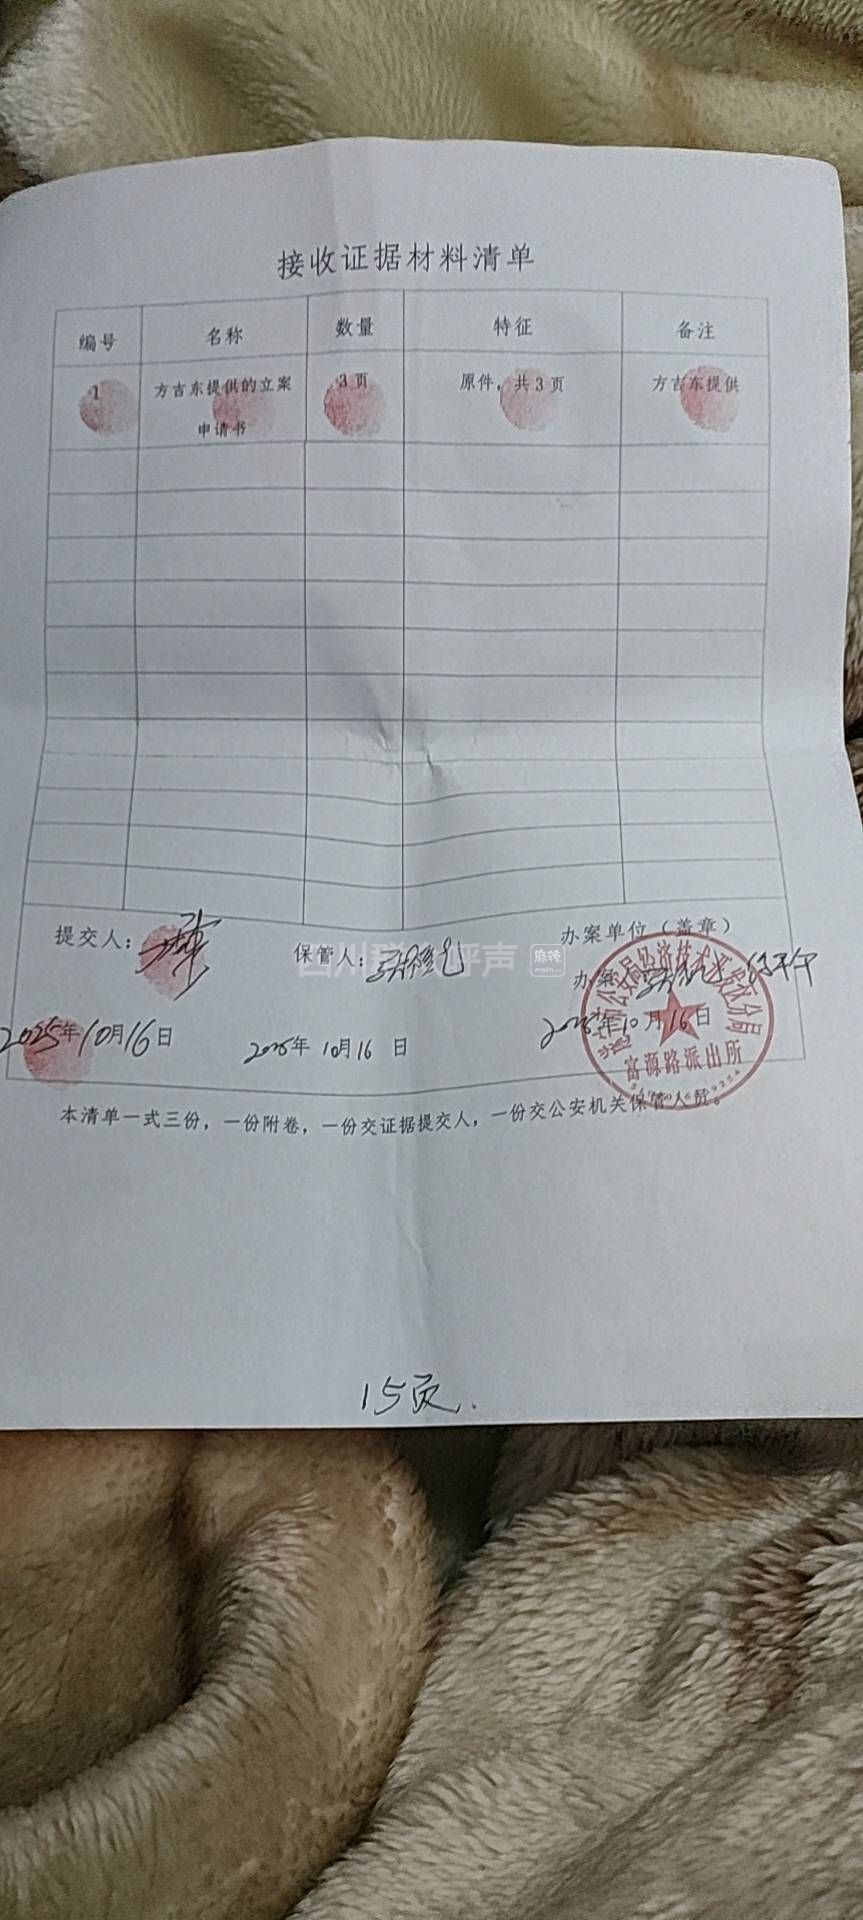 接收证据材料清单
编号 名称 数量 特征 备注
1 方吉东提供的立案 3页 原件，共3页 方吉东提供
申请书
提交人： 保管人： 办案单位（盖章）
四川 呼声 麻辣
办案
2025年10月16日 2025年10月16日 2025年10月16日
公安局经济技术开发区分局
富源路派出所
本清单一式三份，一份附卷，一份交证据提交人，一份交公安机关保管人员。
15页.